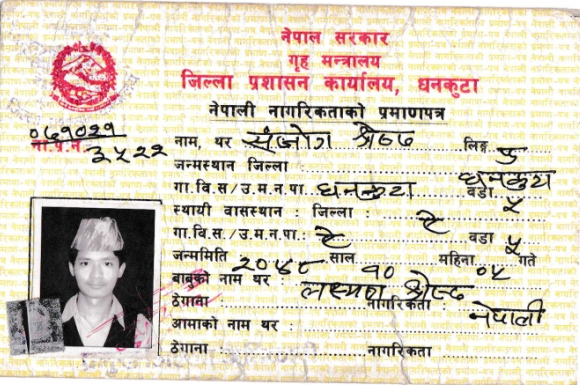 नेपाल सरकार
गृह मन्त्रालय
जिल्ला प्रशासन कार्यालय, धनकुटा
नेपाली नागरिकताको प्रमाणपत्र
०५१०२१
ना.प्र.नं. ३५२२
नाम, थर संजोग श्रेष्ठ लिङ्ग पु
जन्मस्थान जिल्ला : धनकुटा
गा.वि.स/उ.म.न.पा. धनकुटा वडा ५
स्थायी वासस्थान : जिल्ला : ऐ
गा.वि.स./उ.म.न.पा.: ऐ वडा ५
जन्ममिति २०४८ साल १० महिना ०५ गते
बाबुको नाम थर : लक्ष्मण श्रेष्ठ
ठेगाना नागरिकता : नेपाली
आमाको नाम थर :
ठेगाना : नागरिकता